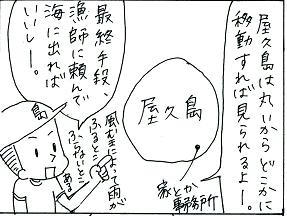 屋久島は丸いからどこかに
移動すれば見られるよー。
屋久島
家とか
事務所
風向きによって雨が
ふるとこ
ふらないとこ
ある
最終手段
漁師に頼んで
海に出れば
いいしー。
島